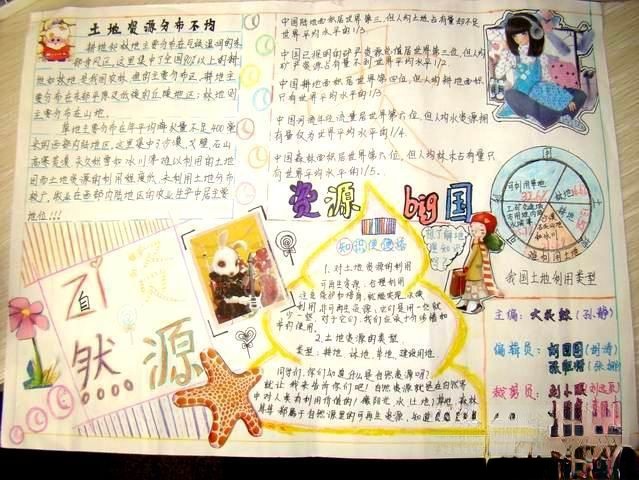 土地资源分布不均
耕地和林地主要分布在气候湿润的东
部季风区，这里集中了全国90%以上的耕
地和林地是我国农林
要分布在东部平原及低缓的丘陵地区；林地则
主要分布在山地。
草地主要分布在年平均降水量不足400毫
米的西部内陆地区，这里集中了沙漠、戈壁、石山
高寒荒漠、永久积雪和冰川等难以利用的土地
较广，牧业在西部内陆地区的农业生产中居主要
地位!!!
中国陆地面积居世界第三，但人均土地占有量却不足
世界平均水平的1/3.
中国已探明的矿产资源总值居世界第三位，但人均
矿产资源占有量不到世界平均水平1/2.
中国耕地面积居世界第四位，但人均耕地面积
只有世界平均水平的1/3.
中国河流年径流量居世界第六位，但人均水资源拥
有量仅为世界平均水平的1/4.
中国森林面积居世界第六位，但人均林木占有量只
有世界平均水平的1/5.
资源big国
可利用草地
林地
耕地
难利用土地
我国土地利用类型
知识便便格
1.对土地资源的利用
可再生资源：合理利用
注意保护和培育，就能实现永续
利用
非可再生资源：它们是用一些就
少一些，对于它们，我们应该十分珍惜和
节约使用。
2.土地资源的类型
类型：耕地、林地、草地、建设用地。
同学们，你们知道什么是自然资源吗？
就让我来告诉你们吧！自然资源就是在自然界
中对人类有利用价值的！像阳光、水、土地、草地、森林
等等都属于自然资源里的可再生资源，知道
自然
资
源
主编：
编辑员：
裁剪员：